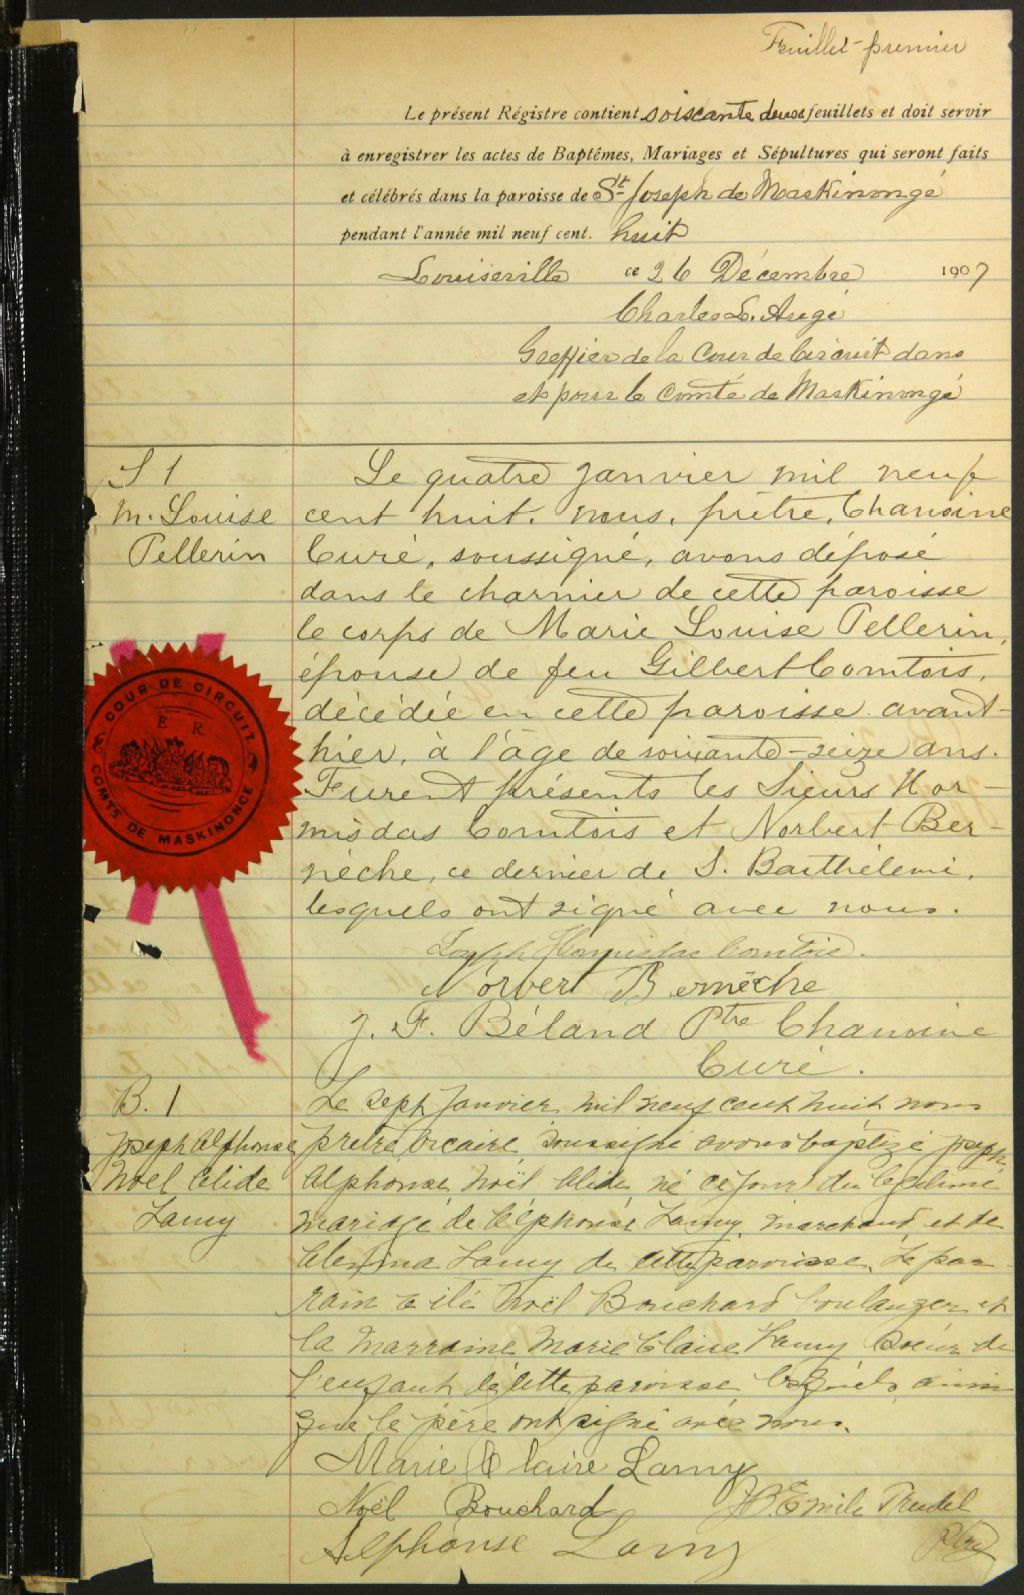 Feuillet-premier
Le présent Régistre contient soiscante deux feuillets et doit servir
à enregistrer les actes de Baptêmes, Mariages et Sépultures qui seront faits
et célébrés dans la paroisse de St Joseph de Maskinongé
pendant l'année mil neuf cent. huit
Louiseville ce 26 Décembre 1907
Charles L. Augé
Greffier de la Cour de Circuit dans
et pour le Comté de Maskinongé
S 1
M. Louise
Pellerin
Le quatre janvier mil neuf
cent huit, nous, prêtre, Chanoine
Curé, soussigné, avons déposé
dans le charnier de cette paroisse
le corps de Marie Louise Pellerin,
épouse de feu Gilbert Comtois,
décédée en cette paroisse avant-
hier, à l'âge de soixante-seize ans.
Furent présents les Sieurs Hor-
misdas Comtois et Norbert Ber-
nèche, ce dernier de S. Barthélemi,
lesquels ont signé avec nous.
COUR DE CIRCUIT
E R
COMTÉ DE MASKINONGE
Joseph Hormisdas Comtois.
Norbert Bernèche
J. F. Béland Ptre Chanoine
Curé.
B. 1
Joseph Alphonse
Noel Alide
Lamy
Le sept Janvier mil neuf cent huit nous
prêtre vicaire soussigné avons baptizé Joseph
Alphonse Noël Alide né ce jour du légitime
mariage de Alphonse Lamy, marchand et de
Lamy de cette paroisse. Le par
rain a été Noël Bouchard boulanger et
la marraine Marie Claire Lamy soeur de
l'enfant de cette paroisse lesquels ainsi
que le père ont signé avec nous.
Marie Claire Lamy
Noël Bouchard H. Emile Trudel
Alphonse Lamy Ptre